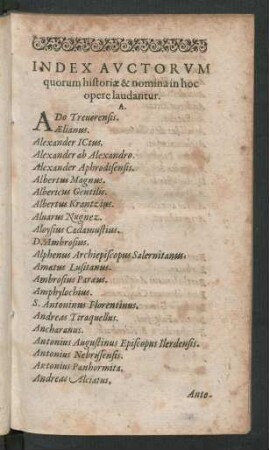 INDEX AVCTORVM
quorum historiæ & nomina in hoc
opere laudantur.
A.
ADo Treuerensis.
Ælianus.
Alexander ICtus.
Alexander ab Alexandro.
Alexander Aphrodisensis.
Albertus Magnus.
Albericus Gentilis.
Albertus Krantzius.
Aluarus Nugnez.
Aloysius Cadamustius.
D. Ambrosius.
Alphenus Archiepiscopus Salernitanus.
Amatus Lusitanus.
Ambrosius Paræus.
Amphylochius.
S. Antoninus Florentinus.
Andreas Tiraquellus.
Ancharanus.
Antonius Augustinus Episcopus Ilerdensis.
Antonius Nebrissensis.
Antonius Panhormita.
Andreas Alciatus.
Anto-